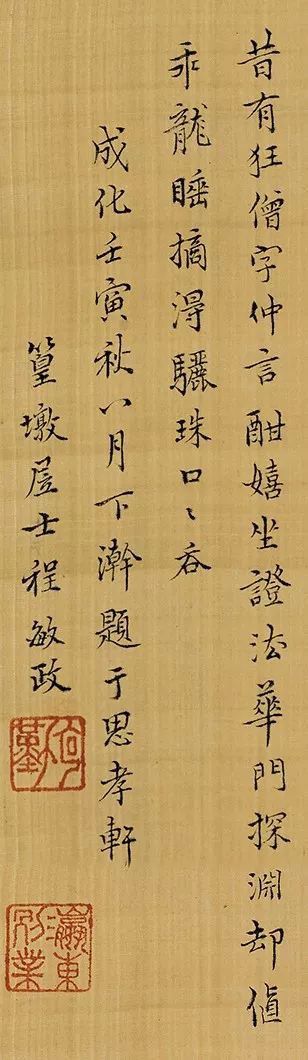 昔有狂僧字仲言酣嬉坐證法華門探淵却値
乖龍睡摘淂驪珠口〻吞
成化壬寅秋八月下澣題于思孝軒
篁墩居士程敏政
瀛東別業